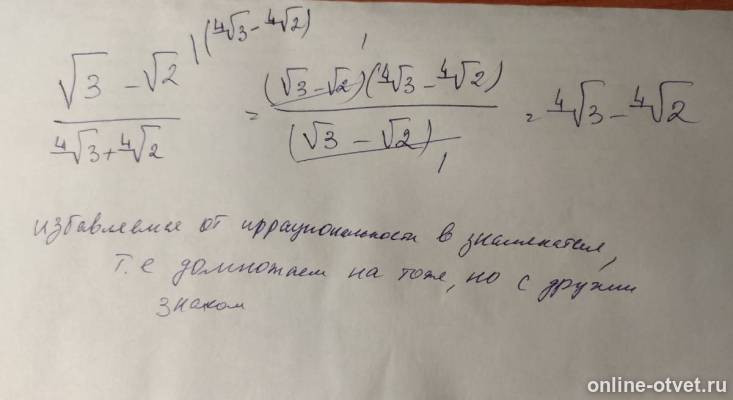 (√3 − √2) / (⁴√3 + ⁴√2) |(⁴√3 − ⁴√2) = (√3 − √2)(⁴√3 − ⁴√2) / (√3 − √2) = ⁴√3 − ⁴√2
избавляемся от иррациональности в знаменателе,
т.е домножаем на тоже, но с другим
знаком
online-otvet.ru